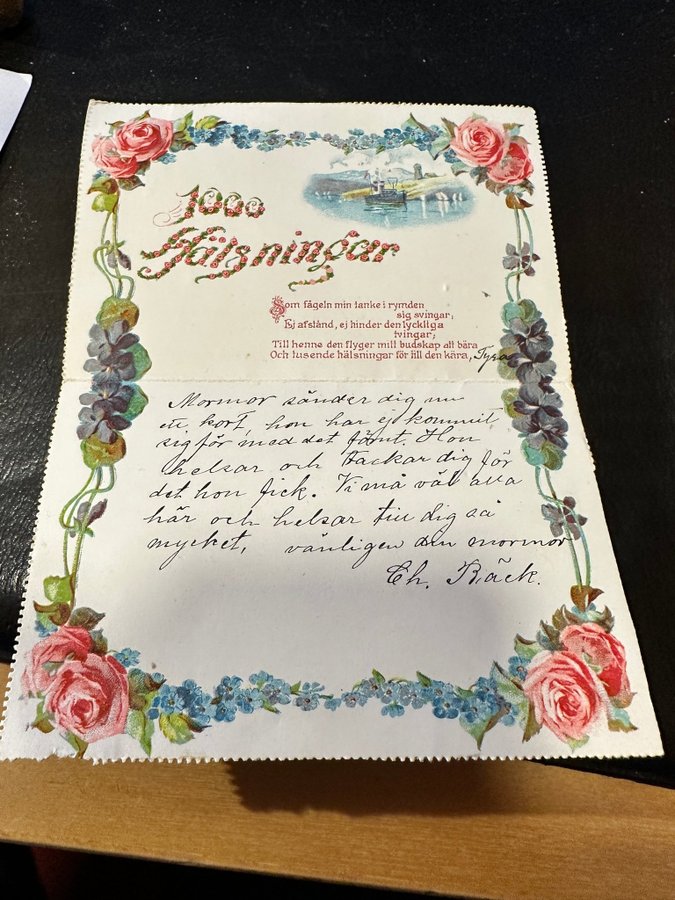 1000
Hälsningar
Som fågeln min tanke i rymden
sig svingar;
Ej afstånd, ej hinder den lyckliga
tvingar;
Till henne den flyger mitt budskap att bära
Och tusende hälsningar för till den kära, Tyra
Mormor sänder dig nu
ett kort, hon har ej kommit
sig för med det förut. Hon
helsar och tackar dig för
det hon fick. Vi må väl alla
här och helsar till dig så
mycket, vänligen din mormor
Ch. Bäck.